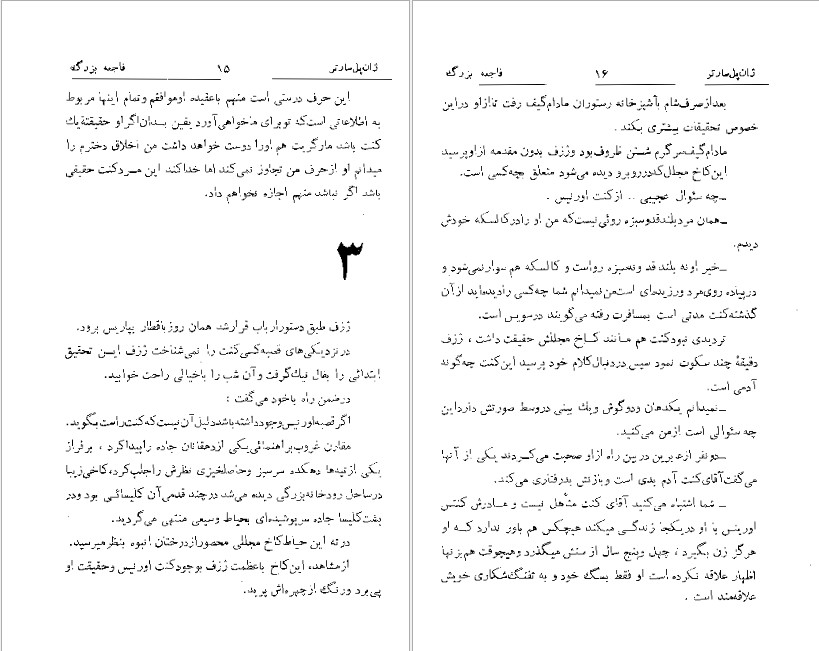 ژان پل سارتر ۱۵ فاجعه بزرگ
این حرف درستی است منهم باعقیده اوموافقم وتمام اینها مربوط
به اطلاعاتی است‌که توبرای ماخواهی‌آورد یقین بدان‌اگراو حقیقة‌یك
کنت باشد مارگریت هم اورا دوست خواهد داشت من اخلاق دخترم را
میدانم او ازحرف من تجاوز نمی‌کند اما خداکند این مسردکنت حقیقی
باشد اگر نباشد منهم اجازه نخواهم داد.
۳
ژزف طبق دستورارباب قرارشد همان روز باقطار بپاریس برود.
درنزدیکی‌های قصبه‌کسی‌کنت را نمی‌شناخت ژزف این تحقیق
ابتدائی را بفال نیك‌گرفت و آن شب را باخیالی راحت خوابید.
درضمن راه باخود می‌گفت :
اگر قصبه اورنیس وجود داشته باشد دلیل آن نیست‌که کنت راست بگوید.
مقارن غروب براهنمائی‌یکی ازدهقانان جاده راپیداکرد ، برفراز
یکی ازتپه‌ها دهکده سرسبز وحاصلخیزی نظرش راجلب‌کرد،کاخی‌زیبا
درساحل رودخانه‌بزرگی دیده می‌شد درچند قدمی‌آن کلیسائی بود ودر
پشت‌کلیسا جاده سرپوشیده‌ای بحیاط وسیعی منتهی می‌گردید.
درته این حیاط‌کاخ مجللی محصورازدرختان انبوه بنظرمیرسید.
ازمشاهده این‌کاخ باعظمت ژزف بوجودکنت اورنیس وحقیقت او
پی‌برد ورنگ ازچهره‌اش پرید.
ژان پل سارتر ۱۶ فاجعه بزرگ
بعدازصرف‌شام باآشپزخانه رستوران مادام‌گیف رفت تاازاو دراین
خصوص تحقیقات بیشتری بکند .
مادام‌گیف‌سرگرم شستن ظروف‌بود وژزف بدون مقدمه ازاوپرسید
این‌کاخ مجلل‌که‌درروبرو دیده می‌شود متعلق بچه‌کسی است.
ـ چه سئوال عجیبی .. ازکنت اورنیس .
ـ همان مردبلندقدوسبزه روئی نیست‌که من او رادرکالسکه خودش
دیدم.
ـ خیر اونه بلند قد ونه‌سبزه رواست و کالسکه هم سوارنمی‌شود و
درپیاده روی‌مرد ورزیده‌ای است‌من نمیدانم شما چه‌کسی رادیده‌اید ازآن
گذشته‌کنت مدتی است بمسافرت رفته می‌گویند درسویس است.
تردیدی نبودکنت هم مانند کاخ مجللش حقیقت داشت ، ژزف
دقیقهٔ چند سکوت نمود سپس دردنبال‌کلام خود پرسید این‌کنت چه‌گونه
آدمی است.
ـ نمیدانم یکدهان ودوگوش ویك بینی دروسط صورتش دارداین
چه سئوالی است ازمن می‌کنید.
ـ دونفر ازعابرین در بین راه ازاو صحبت می‌کردند یکی از آنها
می‌گفت‌آقای‌کنت آدم بدی است وبازنش بدرفتاری می‌کند.
ـ شما اشتباه می‌کنید آقای کنت متأهل نیست و مادرش کنتس
اورنیس با او دریکجا زندگی میکند هیچکس هم باور ندارد که او
هرگز زن بگیرد ، چهل وپنج سال از سنش میگذرد وهیچوقت هم‌بزنها
اظهار علاقه نکرده است او فقط بسگ خود و به تفنگ‌شکاری خویش
علاقه‌مند است .